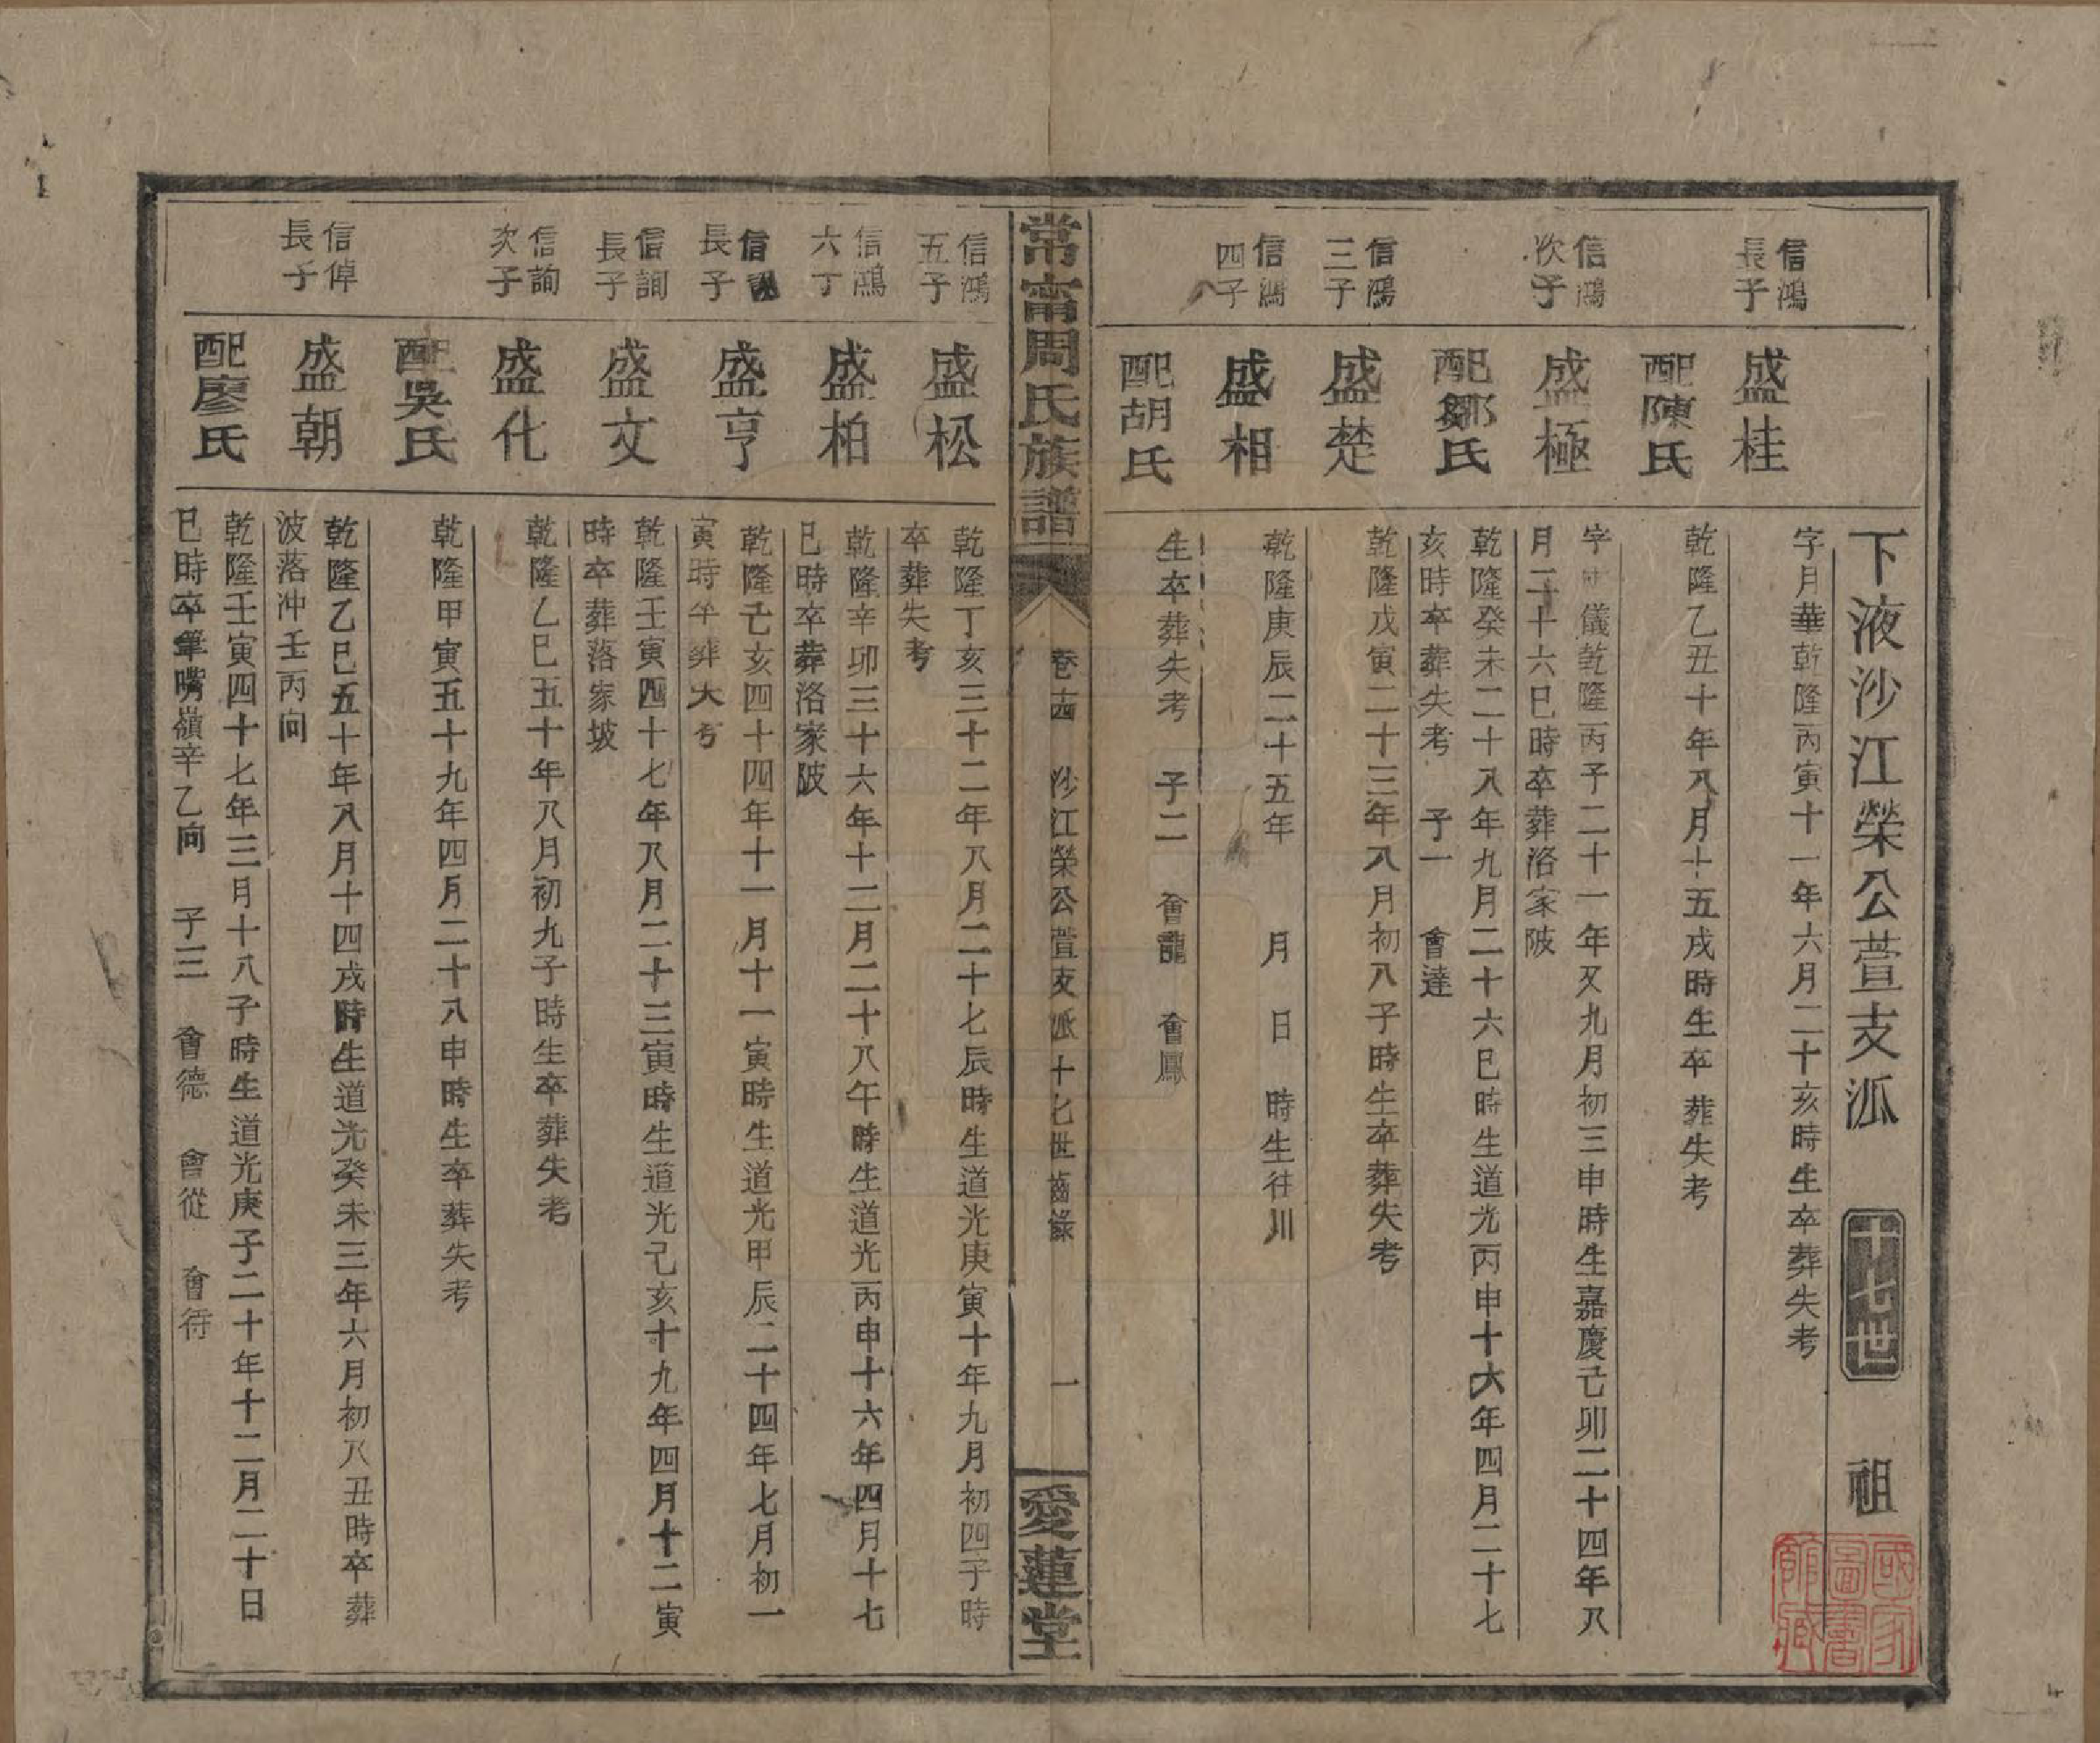 下液沙江榮公萱支派 十七世 祖
信鴻
長子
盛桂
字月華乾隆丙寅十一年六月二十亥時生卒葬失考
配陳氏
乾隆乙丑十年八月十五戌時生卒葬失考
信鴻
次子
盛極
字 儀乾隆丙子二十一年又九月初三申時生嘉慶己卯二十四年八
月二十六巳時卒葬洛家陂
配鄒氏
乾隆癸未二十八年九月二十六巳時生道光丙申十六年四月二十七
亥時卒葬失考 子一 會達
信鴻
三子
盛楚
乾隆戊寅二十三年八月初八子時生卒葬失考
信鴻
四子
盛相
乾隆庚辰二十五年 月 日 時生往川
配胡氏
生卒葬失考 子二 會龍 會鳳
常甯周氏族譜
卷十四 沙江榮公萱支派十七世齒錄
一
愛蓮堂
信鴻
五子
盛松
乾隆丁亥三十二年八月二十七辰時生道光庚寅十年九月初四子時
卒葬失考
信鴻
六丁
盛柏
乾隆辛卯三十六年十二月二十八午時生道光丙申十六年四月十七
巳時卒葬洛家陂
信
長子
盛亨
乾隆 亥四十四年十一月十一寅時生道光甲辰二十四年七月初一
寅時卒葬大考
信詢
長子
盛文
乾隆壬寅四十七年八月二十三寅時生道光己亥十九年四月十二寅
時卒葬落家坡
信詢
次子
盛化
乾隆乙巳五十年八月初九子時生卒葬失考
配吳氏
乾隆甲寅五十九年四月二十八申時生卒葬失考
信倬
長子
盛朝
乾隆乙巳五十年八月十四戌時生道光癸未三年六月初八丑時卒葬
波落冲壬丙向
配廖氏
乾隆壬寅四十七年三月十八子時生道光庚子二十年十二月二十日
巳時卒葬筆嘴嶺辛乙向 子三 會德 會從 會待
國家
圖書
館藏